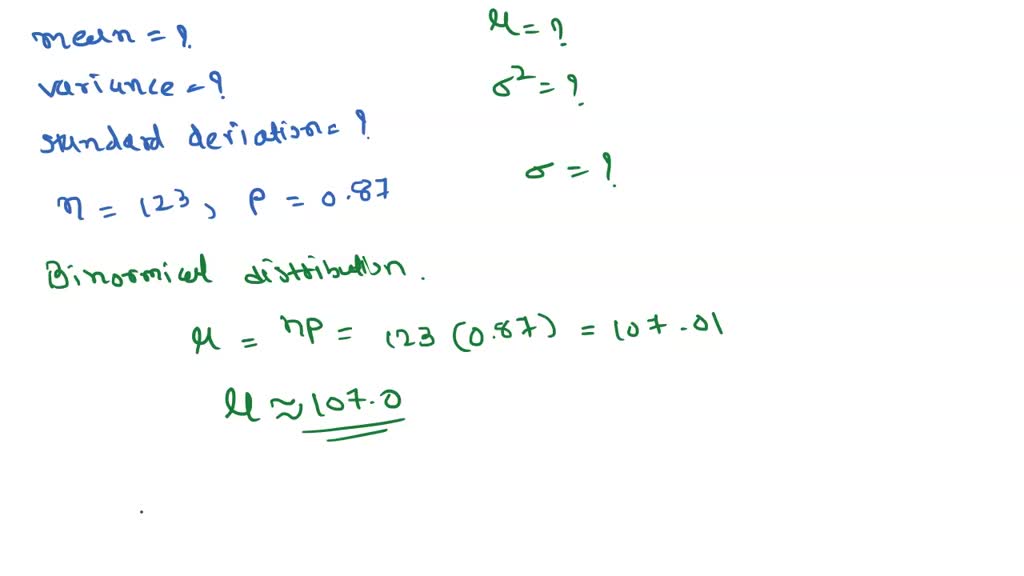 mean = ?
variance = ?
standard deriation = ?
n = 123, P = 0.87
μ = ?
σ² = ?
σ = ?
Binormical distribution.
μ = np = 123 (0.87) = 107.01
μ ≈ 107.0